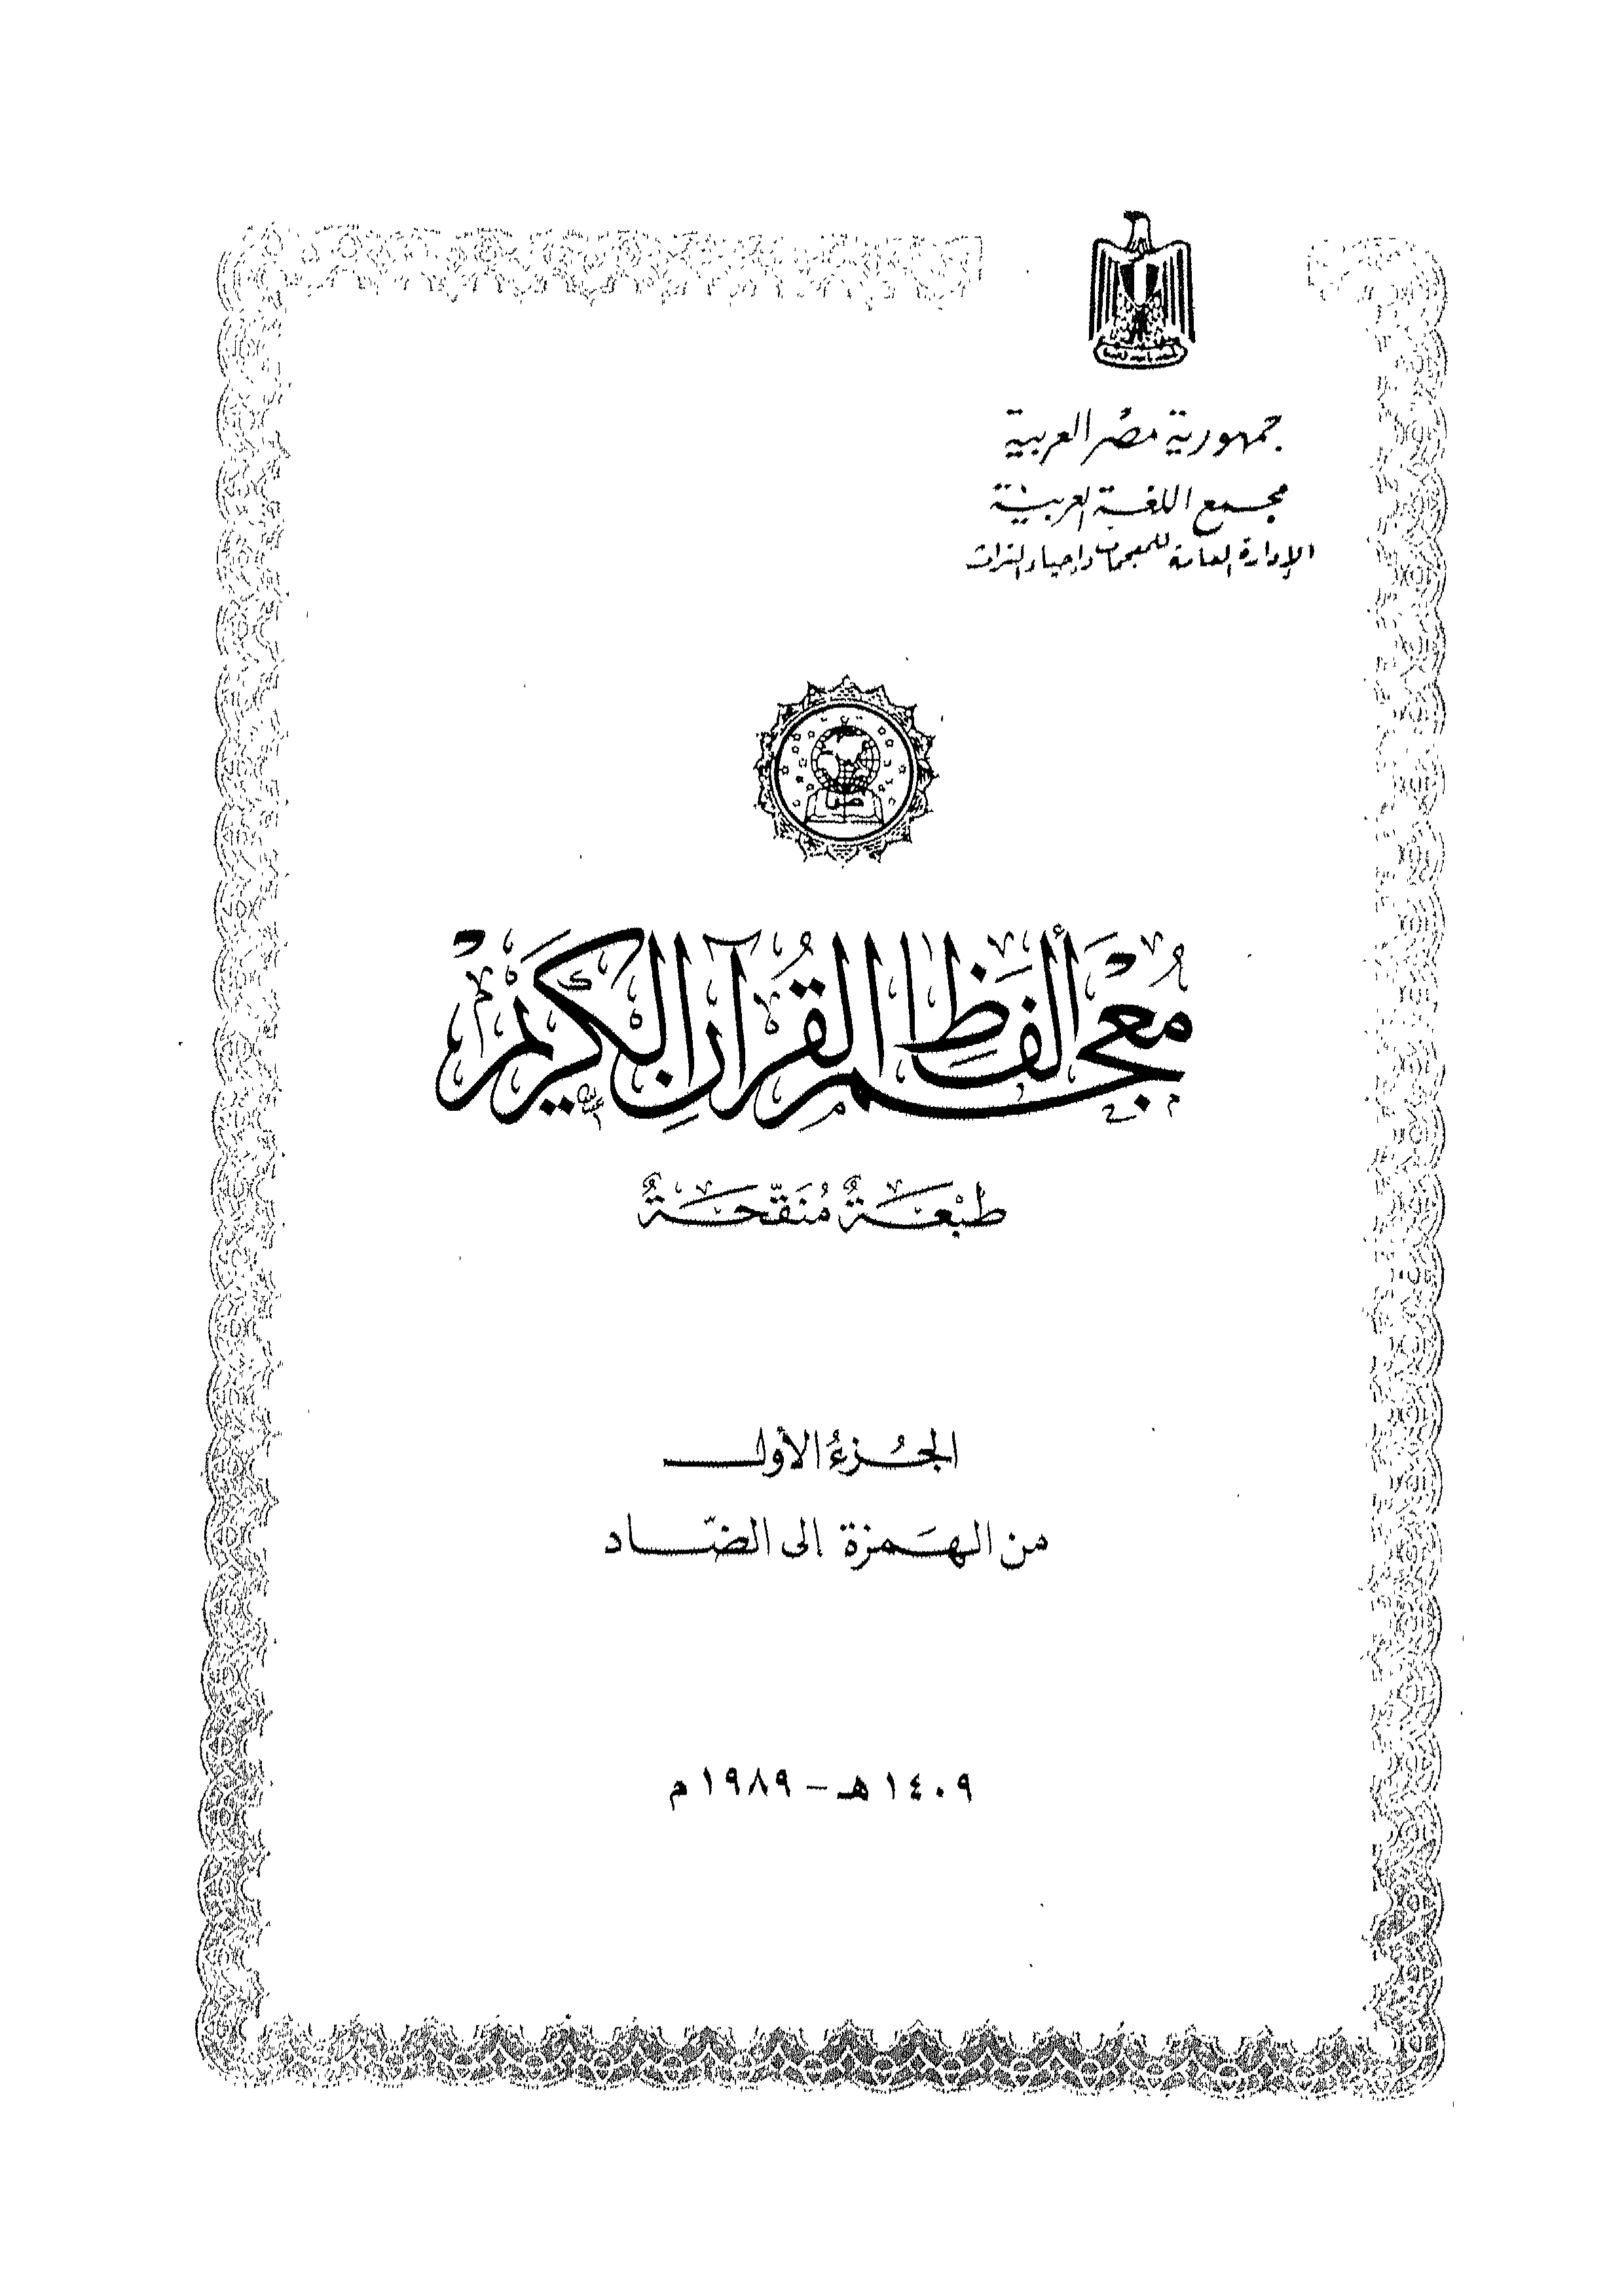 جمهورية مصر العربية
مجمع اللغة العربية
الإدارة العامة للمعجمات وإحياء التراث
مُعْجَم أَلفَاظ القُرآنِ الكَرِيْمِ
طَبْعَةٌ مُنَقّحَةٌ
الجُزءُ الأول
من الهَمزة إلى الضّاد
١٤٠٩ هـ - ١٩٨٩ م